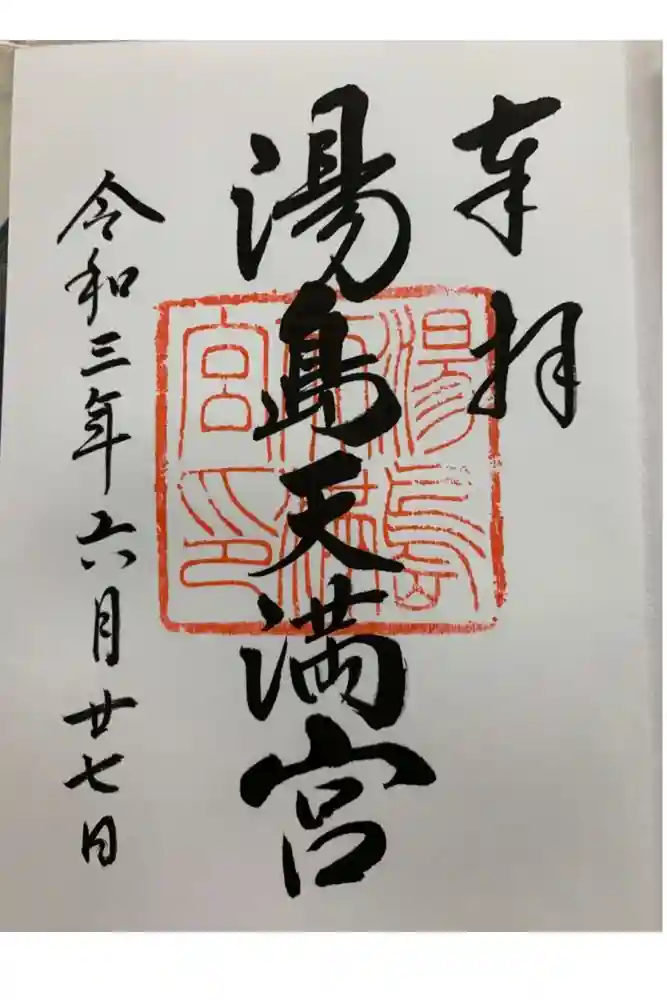 奉拝
湯島天満宮
湯島天満宮印
令和三年六月廿七日